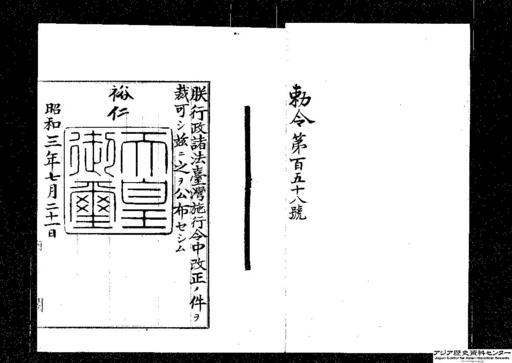 勅令第百五十八號
朕行政諸法臺灣施行令中改正ノ件ヲ
裁可シ玆ニ之ヲ公布セシム
裕仁
天皇
御璽
昭和三年七月二十一日
内閣
アジア歴史資料センター
Japan Center for Asian Historical Records